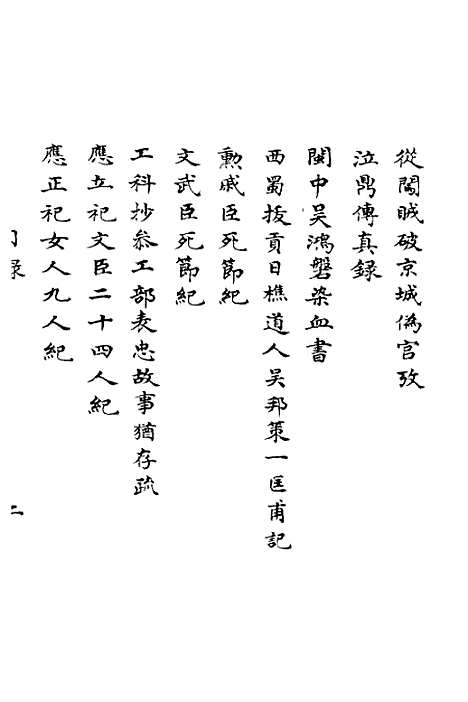 從闖賊破京城偽官攷
泣鼎傳真錄
閩中吳鴻磐染血書
西蜀拔貢日樵道人吳邦策一匡甫記
勳戚臣死節紀
文武臣死節紀
工科抄叅工部表忠故事猶存疏
應立祀文臣二十四人紀
應正祀女人九人紀
目録
二